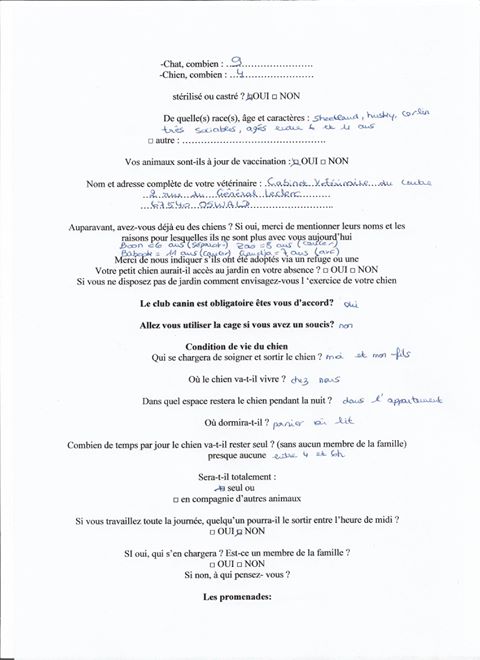 -Chat, combien : ..9........................
-Chien, combien : ..4......................
stérilisé ou castré ? ☒OUI □ NON
De quelle(s) race(s), âge et caractères : Shetland, husky, corleu
très sociables, âgés entre 4 et 11 ans
□ autre : ............................................
Vos animaux sont-ils à jour de vaccination : ☒ OUI □ NON
Nom et adresse complète de votre vétérinaire : Cabinet Vétérinaire du Centre
2 rue du Général Leclerc
67540 OSWALD
Auparavant, avez-vous déjà eu des chiens ? Si oui, merci de mentionner leurs noms et les
raisons pour lesquelles ils ne sont plus avec vous aujourd'hui
= 8 ans (cancer)
= 11 ans (cancer) = 7 ans (avc)
Merci de nous indiquer s'ils ont été adoptés via un refuge ou une
Votre petit chien aurait-il accès au jardin en votre absence ? □ OUI □ NON
Si vous ne disposez pas de jardin comment envisagez-vous l 'exercice de votre chien
Le club canin est obligatoire êtes vous d'accord? oui
Allez vous utiliser la cage si vous avez un soucis? non
Condition de vie du chien
Qui se chargera de soigner et sortir le chien ? moi et mon fils
Où le chien va-t-il vivre ? chez nous
Dans quel espace restera le chien pendant la nuit ? dans l'appartement
Où dormira-t-il ? panier ou lit
Combien de temps par jour le chien va-t-il rester seul ? (sans aucun membre de la famille)
presque aucune entre 4 et 6h
Sera-t-il totalement :
☒ seul ou
□ en compagnie d'autres animaux
Si vous travaillez toute la journée, quelqu'un pourra-il le sortir entre l'heure de midi ?
□ OUI ☒ NON
SI oui, qui s'en chargera ? Est-ce un membre de la famille ?
□ OUI □ NON
Si non, à qui pensez- vous ?
Les promenades: